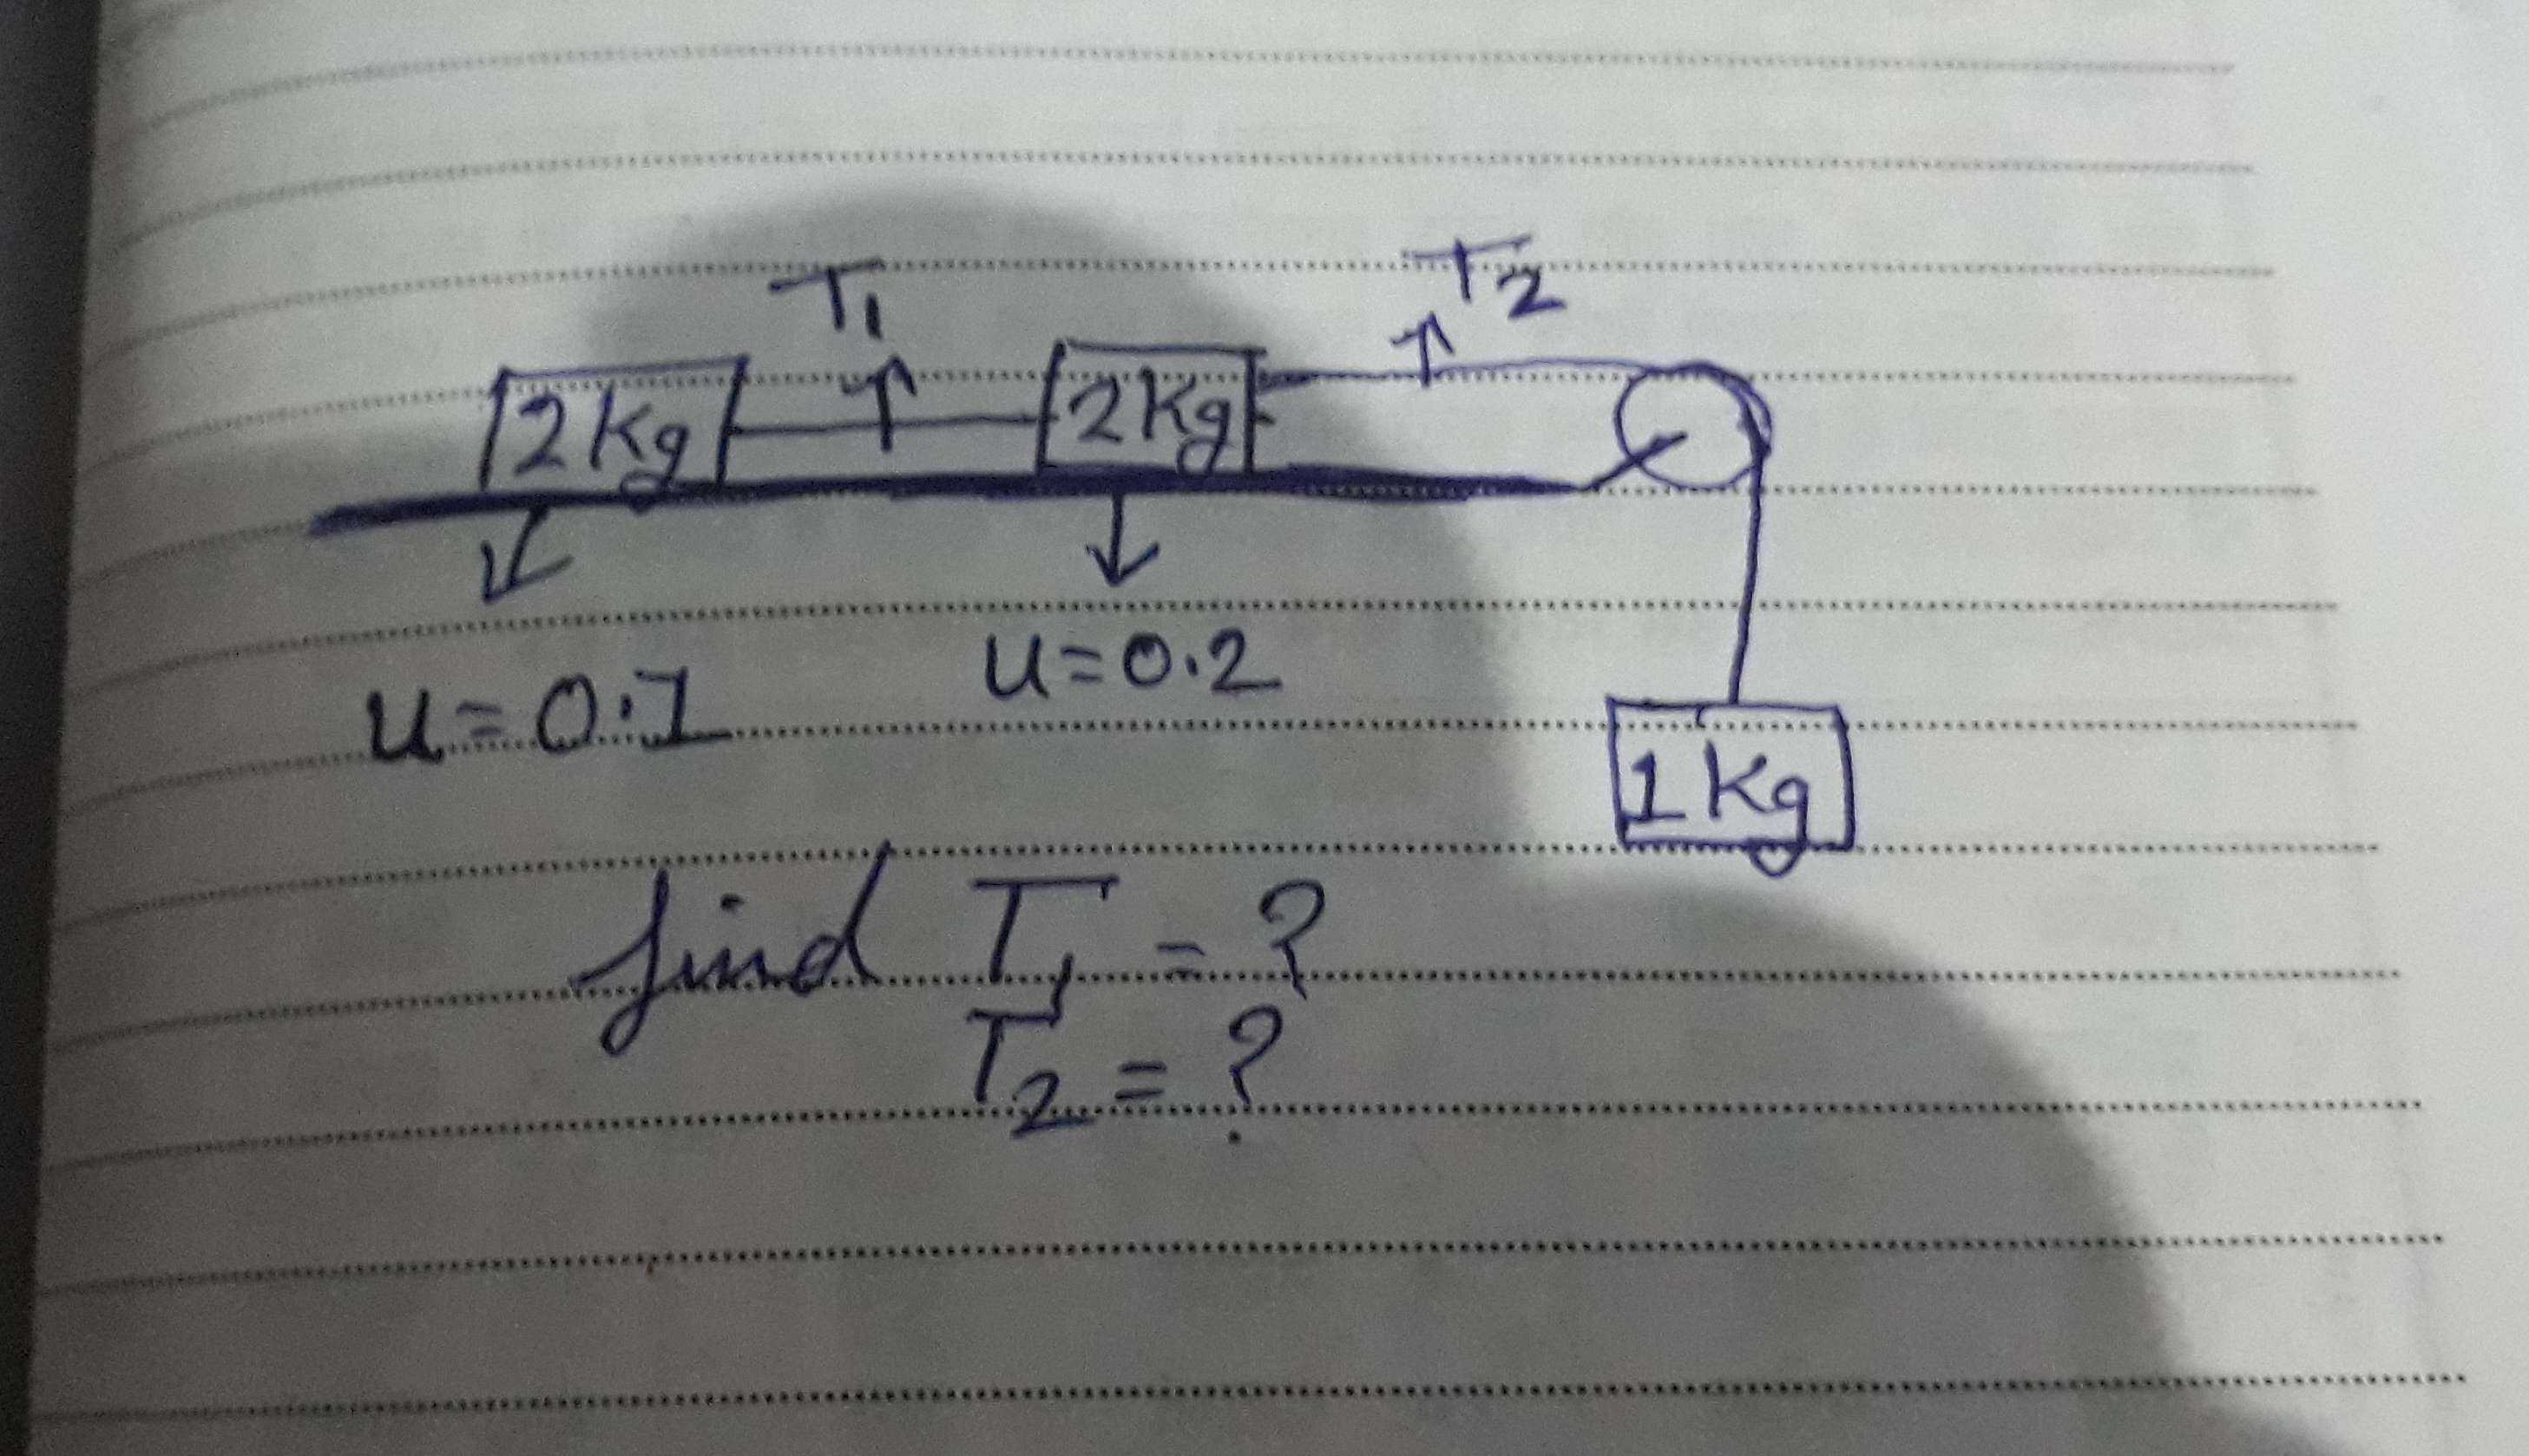 T₁ T₂
2 Kg 2 Kg
u = 0.1 u = 0.2
1 Kg
find T₁ = ?
T₂ = ?